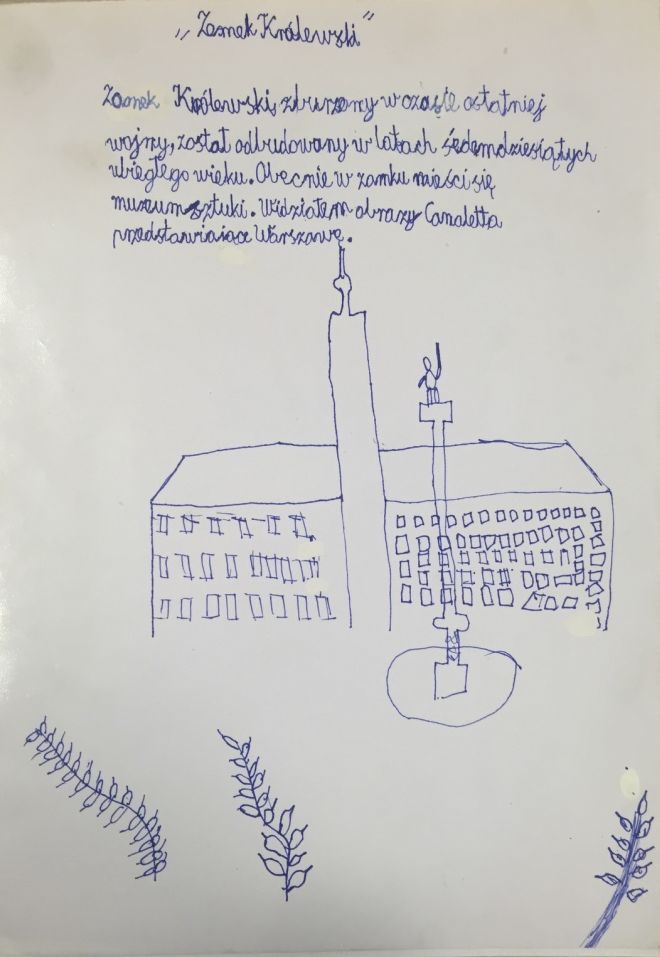 „Zamek Królewski”
Zamek Królewski, zburzony w czasie ostatniej
wojny, został odbudowany w latach śedemdziesiątych
ubiegłego wieku. Obecnie w zamku mieści się
muzeum sztuki. Widziałem obrazy Canaletta
przedstawiające Warszawę.